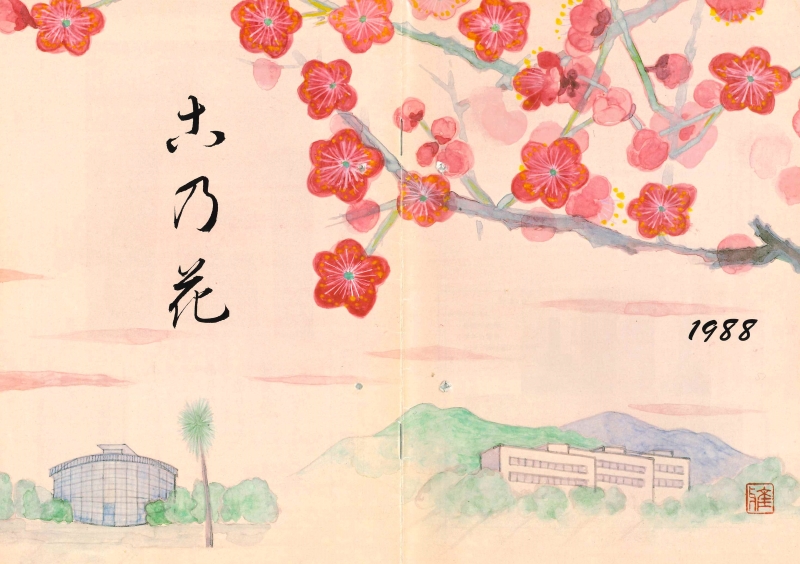 古乃花
1988